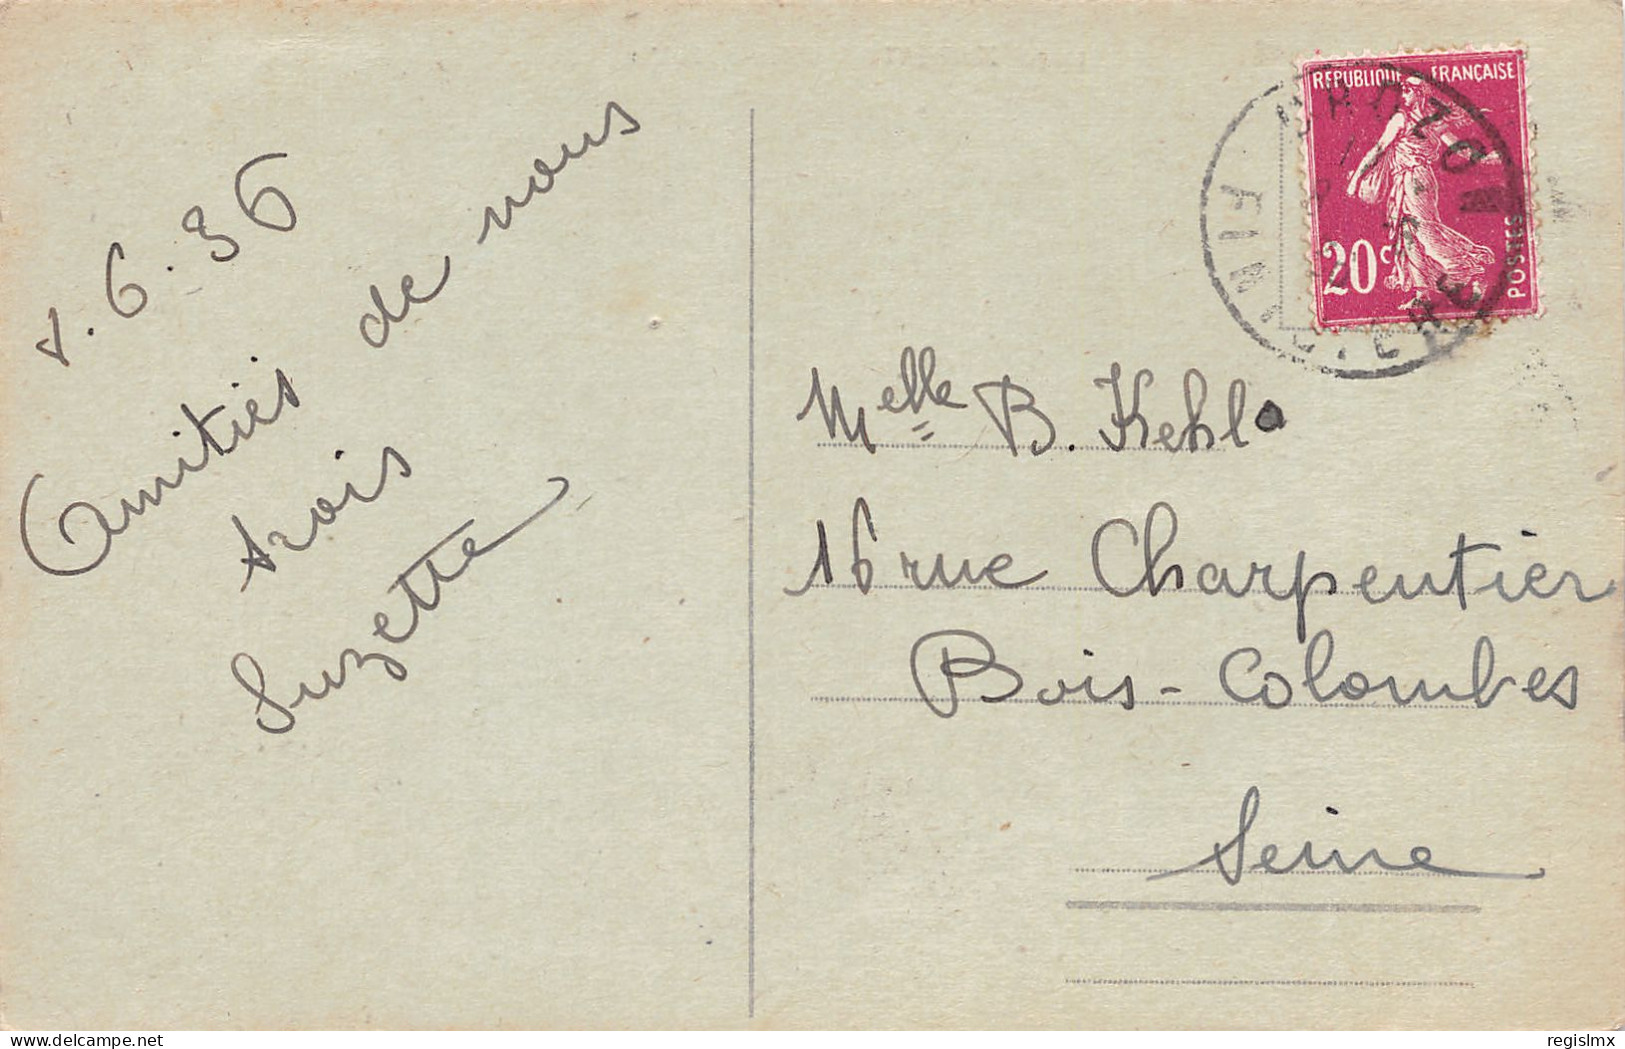 1.6.36
Amitiés de nous
trois
Suzette
REPUBLIQUE FRANÇAISE
20c
POSTES
CROZON
FINISTERE
Melle B. Kehl
16 rue Charpentier
Bois-Colombes
Seine
regislmx